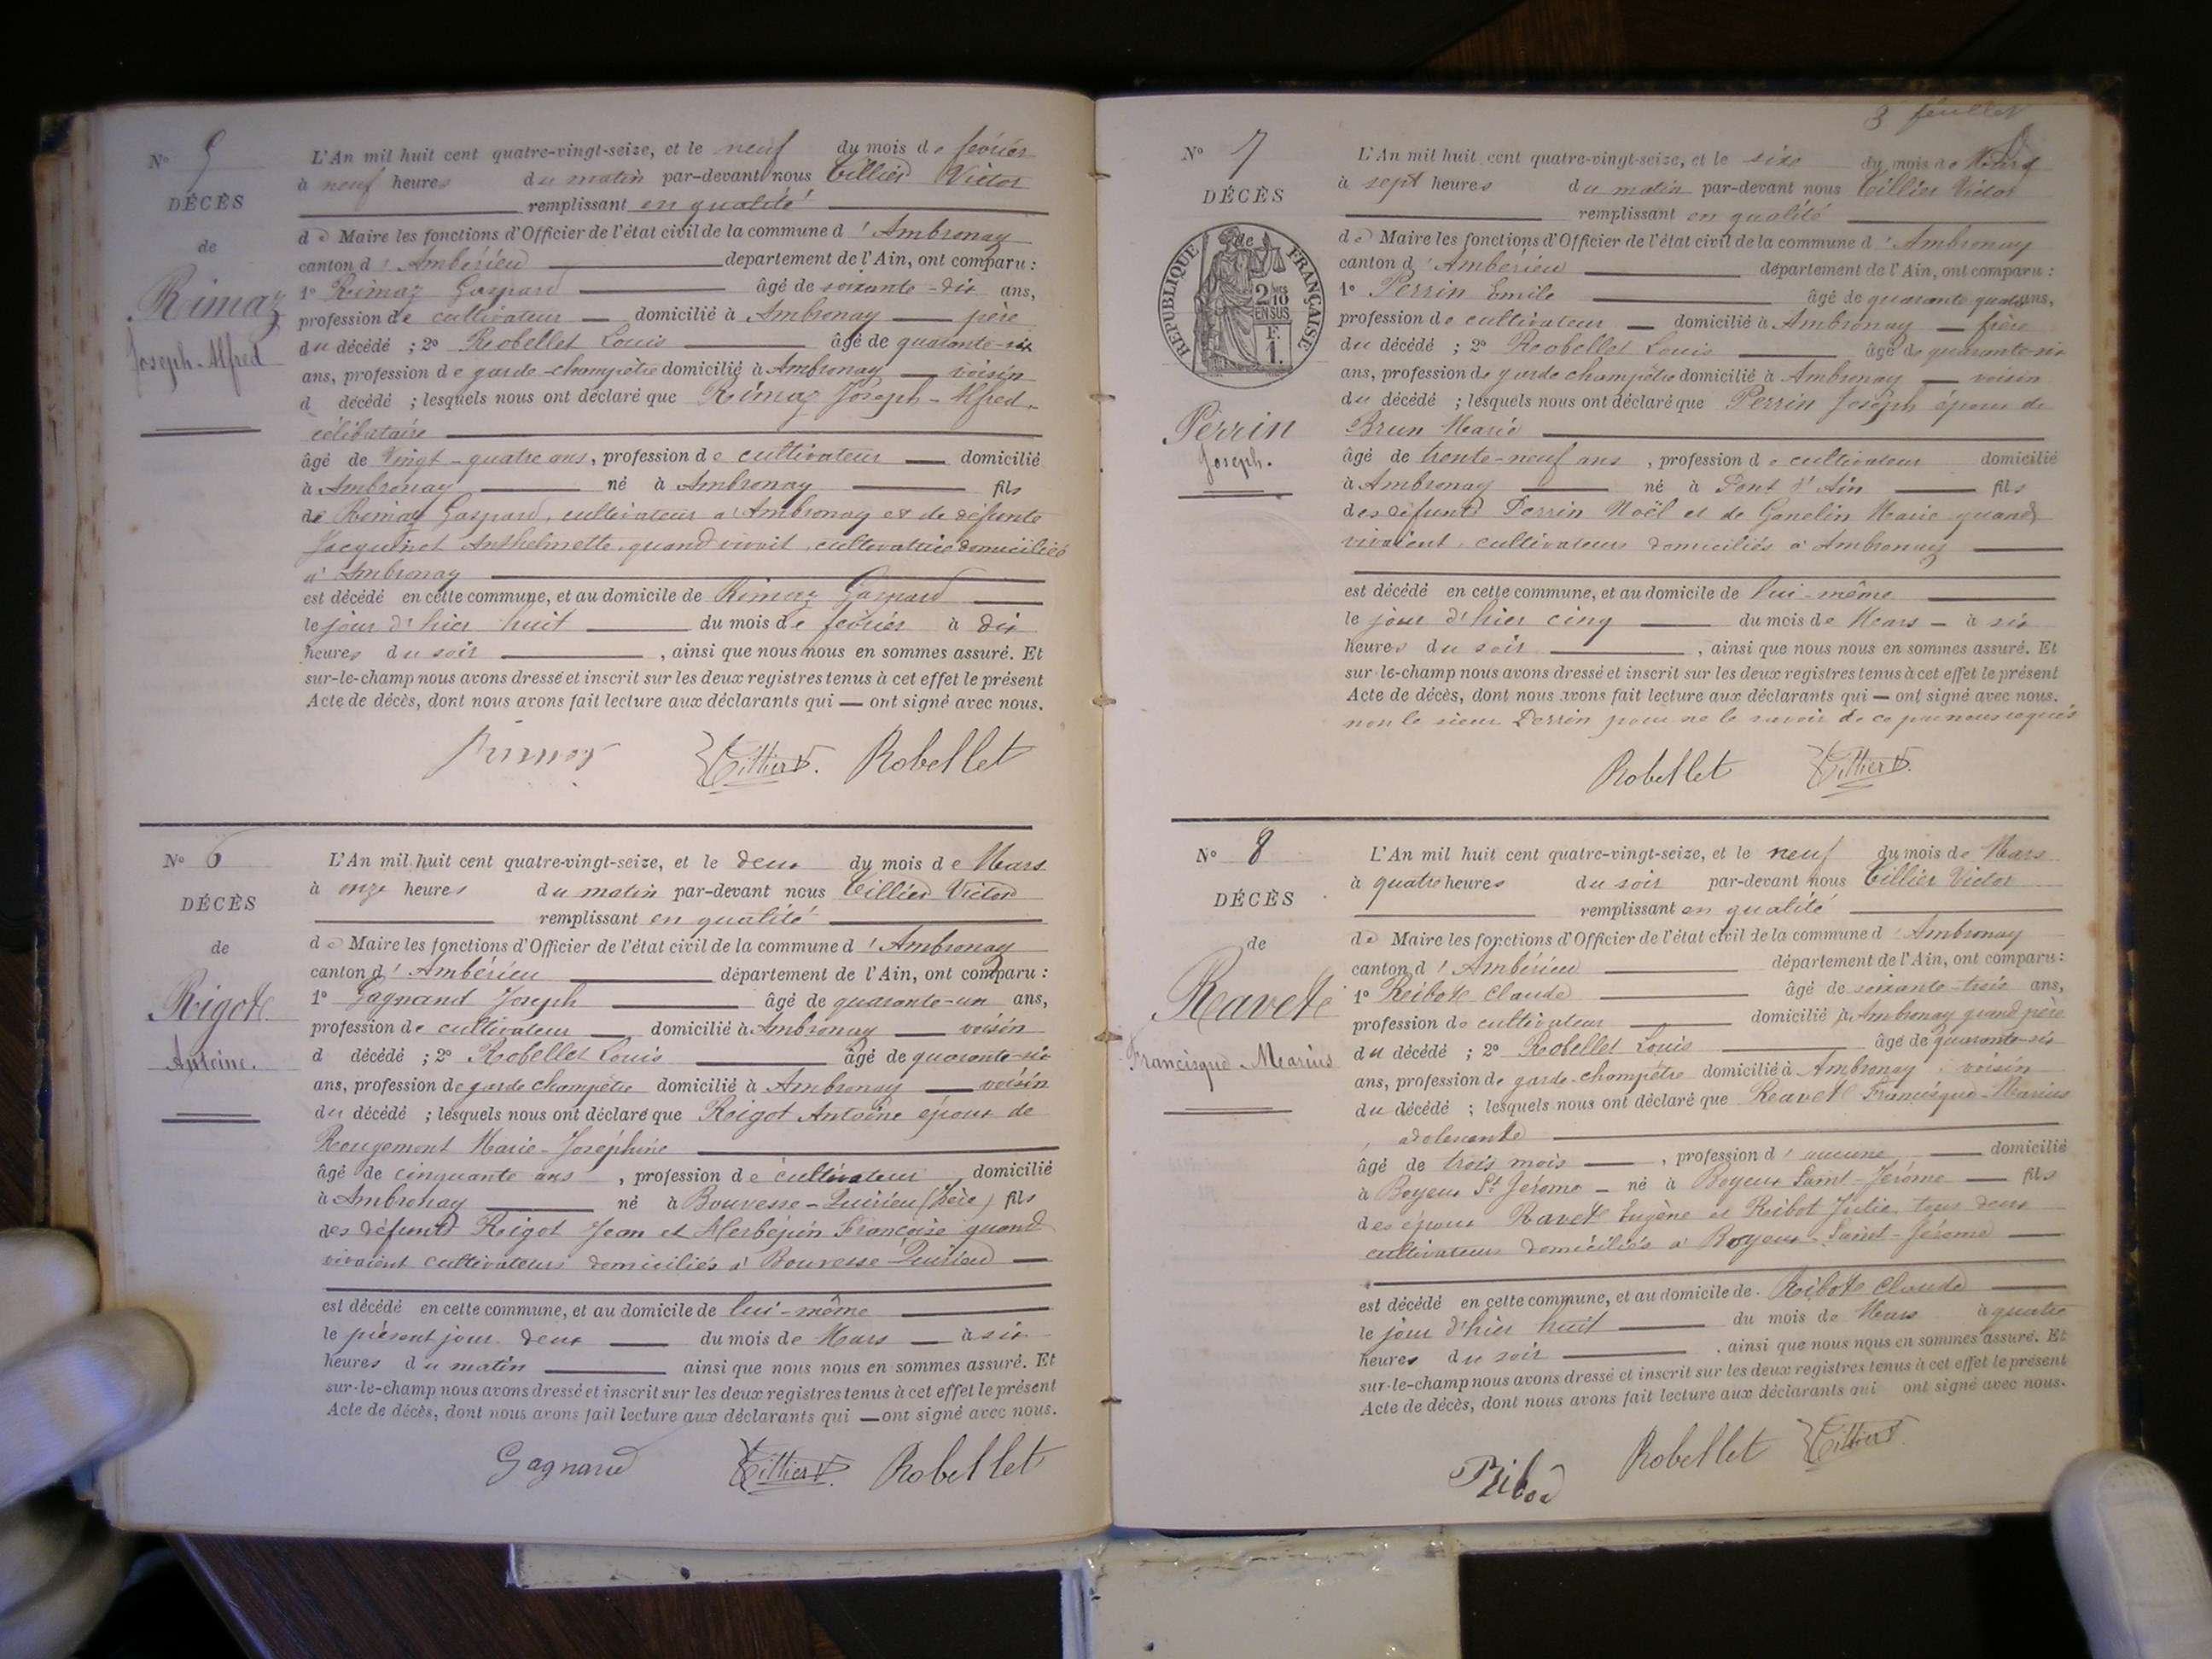 N° 5
DÉCÈS
de
Rimaz
Joseph-Alfred
L'An mil huit cent quatre-vingt-seize, et le neuf du mois de février
à neuf heures du matin par-devant nous Tillier Victor
remplissant en qualité
de Maire les fonctions d'Officier de l'état civil de la commune d'Ambronay
canton d'Ambérieu département de l'Ain, ont comparu :
1° Rimaz Gaspard âgé de soixante-dix ans,
profession de cultivateur domicilié à Ambronay père
du décédé ; 2° Robellet Louis âgé de quarante-six
ans, profession de garde-champêtre domicilié à Ambronay voisin
d décédé ; lesquels nous ont déclaré que Rimaz Joseph-Alfred
célibataire
âgé de vingt-quatre ans, profession de cultivateur domicilié
à Ambronay né à Ambronay fils
de Rimaz Gaspard, cultivateur à Ambronay et de défunte
Jacquinet Anthelmette quand vivait, cultivatrice domiciliée
à Ambronay
est décédé en cette commune, et au domicile de Rimaz Gaspard
le jour d'hier huit du mois de février à dix
heures du soir, ainsi que nous nous en sommes assuré. Et
sur-le-champ nous avons dressé et inscrit sur les deux registres tenus à cet effet le présent
Acte de décès, dont nous avons fait lecture aux déclarants qui — ont signé avec nous.
Rimaz Tillier V. Robellet
N° 6
DÉCÈS
de
Rigot
Antoine.
L'An mil huit cent quatre-vingt-seize, et le deux du mois de Mars
à onze heures du matin par-devant nous Tillier Victor
remplissant en qualité
de Maire les fonctions d'Officier de l'état civil de la commune d'Ambronay
canton d'Ambérieu département de l'Ain, ont comparu :
1° Gagnand Joseph âgé de quarante-un ans,
profession de cultivateur domicilié à Ambronay voisin
d décédé ; 2° Robellet Louis âgé de quarante-six
ans, profession de garde champêtre domicilié à Ambronay voisin
du décédé ; lesquels nous ont déclaré que Rigot Antoine époux de
Rougemont Marie-Joséphine
âgé de cinquante ans, profession de cultivateur, domicilié
à Ambronay né à Bouvesse-Quirieu (Isère) fils
des défunts Rigot Jean et Françoise quand
vivaient cultivateurs domiciliés à Bouvesse-Quirieu
est décédé en cette commune, et au domicile de lui-même
le présent jour deux du mois de Mars à six
heures du matin ainsi que nous nous en sommes assuré. Et
sur-le-champ nous avons dressé et inscrit sur les deux registres tenus à cet effet le présent
Acte de décès, dont nous avons fait lecture aux déclarants qui — ont signé avec nous.
Gagnand Tillier V. Robellet
3 feuillet
N° 7
DÉCÈS
de
RÉPUBLIQUE FRANÇAISE
2/10 EN SUS
F. 1.
Perrin
Joseph.
L'An mil huit cent quatre-vingt-seize, et le six du mois de Mars
à sept heures du matin par-devant nous Tillier Victor
remplissant en qualité
de Maire les fonctions d'Officier de l'état civil de la commune d'Ambronay
canton d'Ambérieu département de l'Ain, ont comparu :
1° Perrin Emile âgé de quarante quatre ans,
profession de cultivateur domicilié à Ambronay frère
du décédé ; 2° Robellet Louis âgé de quarante-six
ans, profession de garde champêtre domicilié à Ambronay voisin
du décédé ; lesquels nous ont déclaré que Perrin Joseph époux de
Brun Marie
âgé de trente-neuf ans, profession de cultivateur domicilié
à Ambronay né à Pont d'Ain fils
des défunts Perrin Noël et de Ganelin Marie quand
vivaient, cultivateurs domiciliés à Ambronay
est décédé en cette commune, et au domicile de lui-même
le jour d'hier cinq du mois de Mars à six
heures du soir, ainsi que nous nous en sommes assuré. Et
sur-le-champ nous avons dressé et inscrit sur les deux registres tenus à cet effet le présent
Acte de décès, dont nous avons fait lecture aux déclarants qui — ont signé avec nous.
non le sieur Perrin pour ne le savoir de ce par nous requis
Robellet Tillier V.
N° 8
DÉCÈS
de
Ravet
Francisque-Marius
L'An mil huit cent quatre-vingt-seize, et le neuf du mois de Mars
à quatre heures du soir par-devant nous Tillier Victor
remplissant en qualité
de Maire les fonctions d'Officier de l'état civil de la commune d'Ambronay
canton d'Ambérieu département de l'Ain, ont comparu :
1° Ribot Claude âgé de soixante-trois ans,
profession de cultivateur domicilié à Ambronay grand père
du décédé ; 2° Robellet Louis âgé de quarante-six
ans, profession de garde-champêtre domicilié à Ambronay, voisin
du décédé ; lesquels nous ont déclaré que Ravet Francisque-Marius
âgé de trois mois, profession d'aucune domicilié
à Boyeux St Jérome né à Boyeux Saint-Jérome fils
des époux Ravet Eugène et Ribot Julie, tous deux
cultivateurs domiciliés à Boyeux-Saint-Jérome
est décédé en cette commune, et au domicile de Ribot Claude
le jour d'hier huit du mois de Mars à quatre
heures du soir, ainsi que nous nous en sommes assuré. Et
sur-le-champ nous avons dressé et inscrit sur les deux registres tenus à cet effet le présent
Acte de décès, dont nous avons fait lecture aux déclarants qui ont signé avec nous.
Ribod Robellet Tillier V.